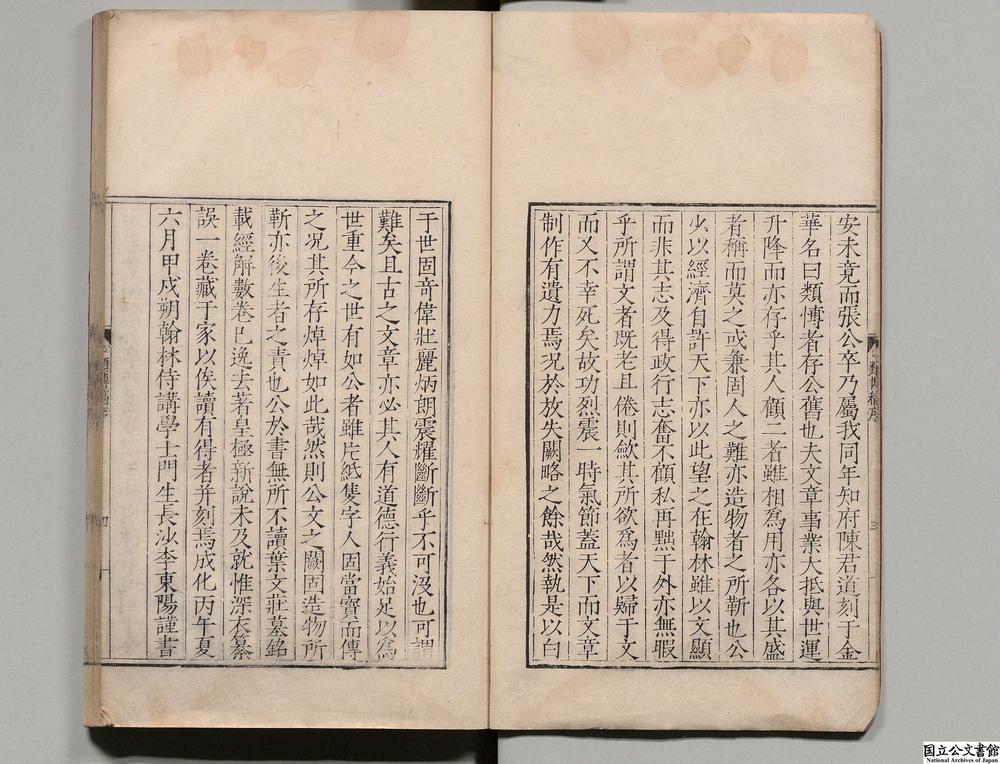 安未竟而張公卒乃屬我同年知府陳君道刻于金
華名曰類博者存公舊也夫文章事業大抵與世運
升降而亦存乎其人顧二者雖相為用亦各以其盛
者稱而莫之或兼固人之難亦造物者之所靳也公
少以經濟自許天下亦以此望之在翰林雖以文顯
而非其志及得政行志奮不顧私再黜于外亦無暇
乎所謂文者既老且倦則歛其所欲為者以歸于文
而又不幸死矣故功烈震一時氣節蓋天下而文章
制作有遺力焉况於放失闕略之餘哉然執是以白
于世固竒偉壯麗炳朗震耀斷斷乎不可沒也可謂
難矣且古之文章亦必其人有道德行義始足以為
世重今之世有如公者雖片紙隻字人固當寳而傳
之况其所存焯焯如此哉然則公文之闕固造物所
靳亦後生者之責也公於書無所不讀葉文莊墓銘
載經解數卷已逸去著皇極新說未及就惟深衣纂
誤一卷藏于家以俟讀有得者并刻焉成化丙午夏
六月甲戌朔翰林侍講學士門生長沙李東陽謹書
類博稿序
三
四
国立公文書館
National Archives of Japan